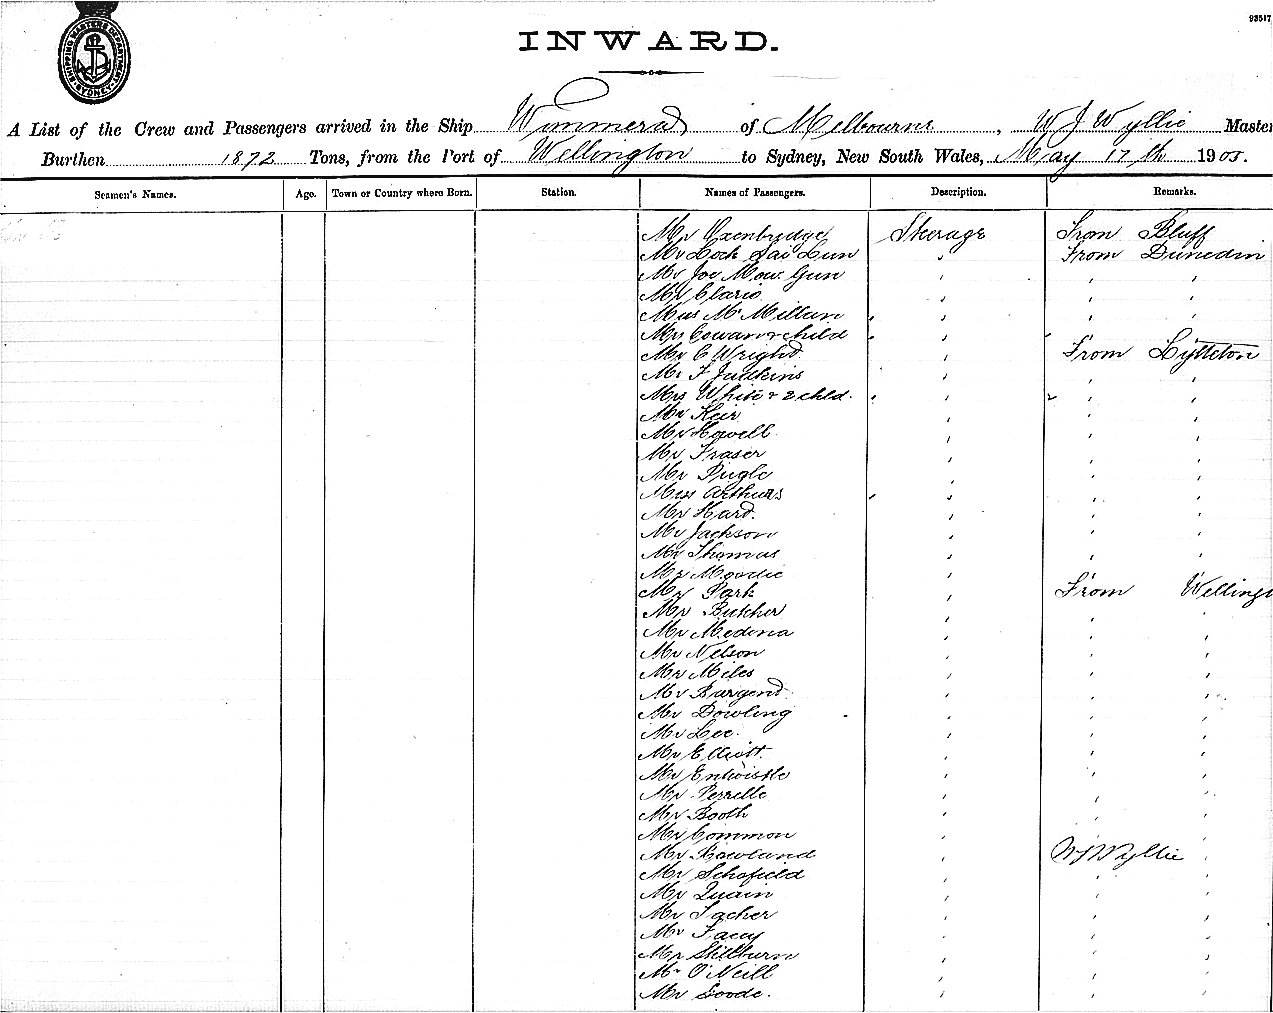 93517
SHIPPING MASTERS DEPARTMENT SYDNEY
INWARD.
A List of the Crew and Passengers arrived in the Ship Wimmera of Melbourne, W J Wyllie Master
Burthen 1872 Tons, from the Port of Wellington to Sydney, New South Wales, May 17th 1905.
Seamen's Names. Age. Town or Country where Born. Station. Names of Passengers. Description. Remarks.
Mr Oxenbridge Steerage From Bluff
Mr Lock Sai Lun " From Dunedin
Mr Joe Mow Gun " " "
Mr Clario " " "
Miss McMillan " " "
Mrs Cowan & child " " "
Mr C Wright " From Lyttelton
Mr F Judkins " " "
Mrs White & 2 chld. " " "
Mr Keir " " "
Mr Howell " " "
Mr Fraser " " "
Mr " " "
Miss Arthurs " " "
Mr Hard. " " "
Mr Jackson " " "
Mr Thomas " " "
Mr Moodie " " "
Mr Park " From Wellingt
Mr Butcher " " "
Mr Medina " " "
Mr Nelson " " "
Mr Miles " " "
Mr Burgend " " "
Mr Dowling " " "
Mr Lee " " "
Mr Elliott " " "
Mr Entwistle " " "
Mr Perrelle " " "
Mr Booth " " "
Mr Common " " "
Mr Rowland " W J Wyllie "
Mr Schofield " " "
Mr Quain " " "
Mr " " "
Mr Facey " " "
Mr Stillburn " " "
Mr O'Neill " " "
Mr Goode. " " "